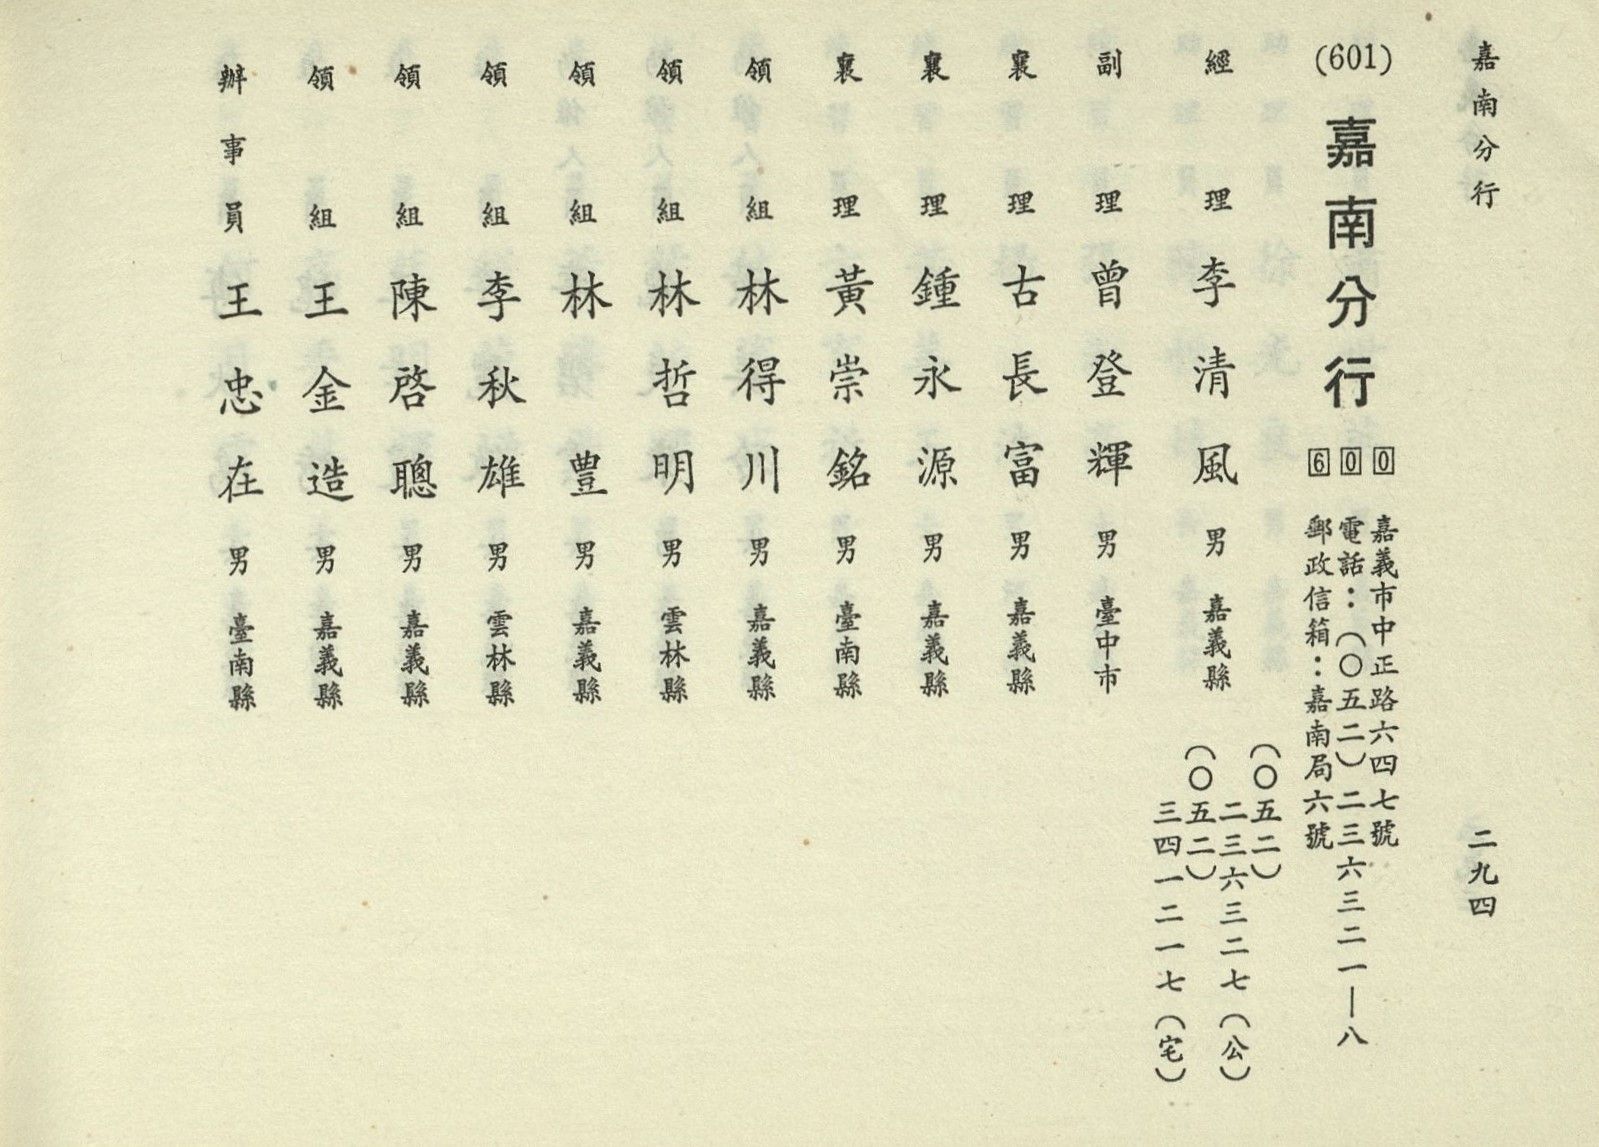 嘉南分行
二九四
(601) 嘉南分行 600
嘉義市中正路六四七號
電話：（○五二）二三六三二一—八
郵政信箱：嘉南局六號
經理 李清風 男 嘉義縣
（○五二）
二三六三二七（公）
（○五二）
三四一二一七（宅）
副理 曾登輝 男 臺中市
襄理 古長富 男 嘉義縣
襄理 鍾永源 男 嘉義縣
襄理 黃崇銘 男 臺南縣
領組 林得川 男 嘉義縣
領組 林哲明 男 雲林縣
領組 林豊 男 嘉義縣
領組 李秋雄 男 雲林縣
領組 陳啓聰 男 嘉義縣
領組 王金造 男 嘉義縣
辦事員 王忠在 男 臺南縣